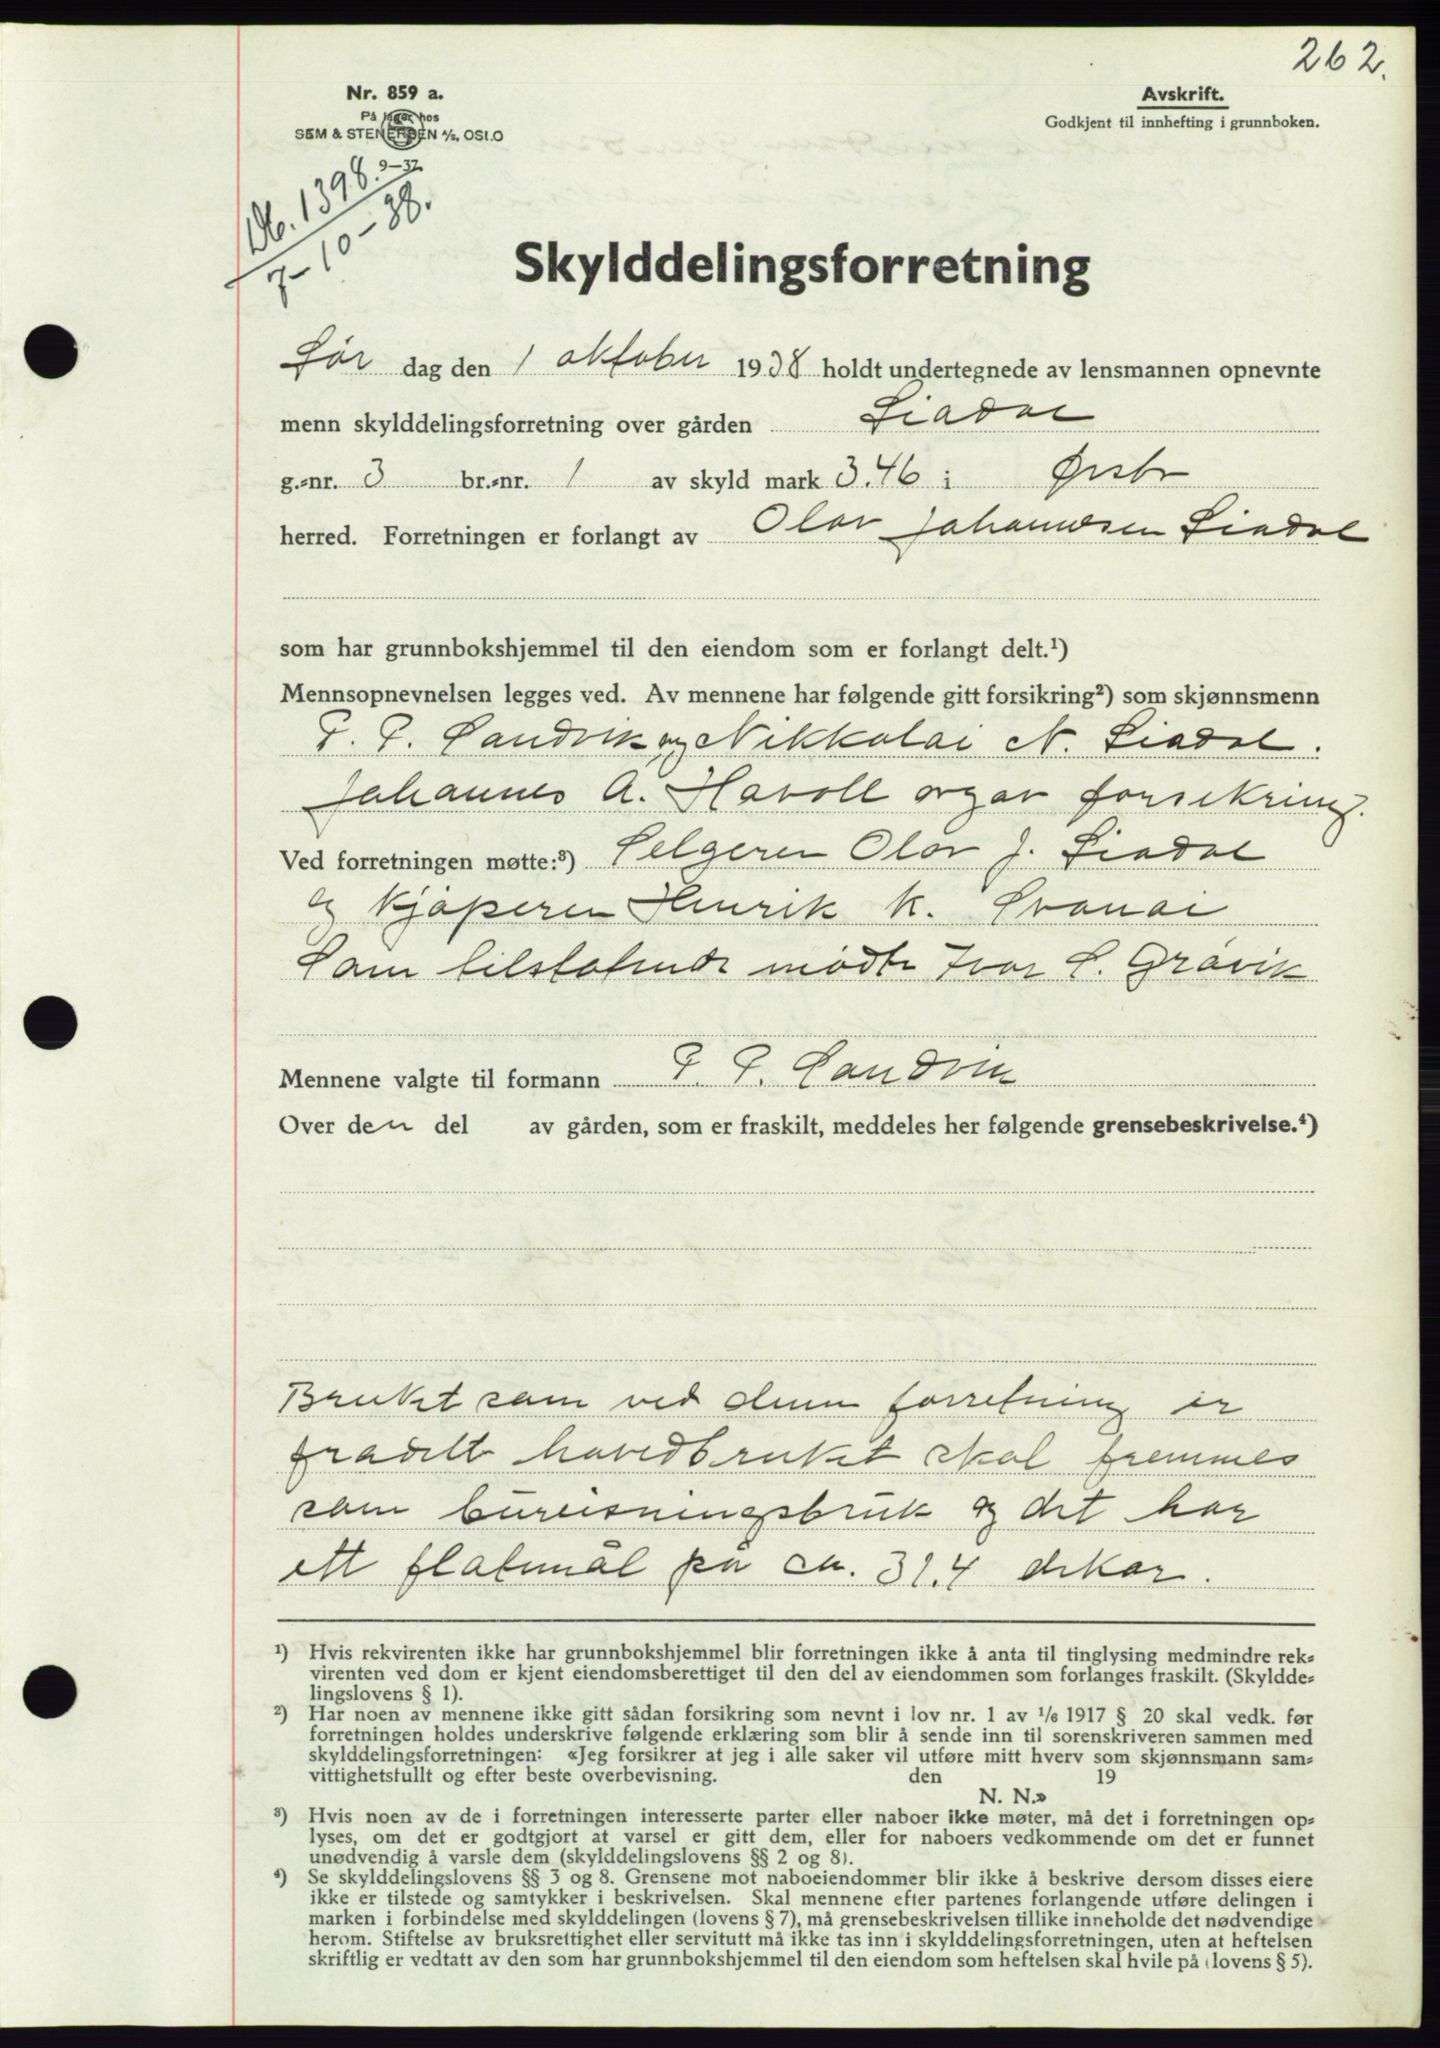 262.
Nr. 859 a.
På lager hos
SEM & STENERSEN A/S, OSLO
9—37.
Db. 1398.
7-10-38.
Avskrift.
Godkjent til innhefting i grunnboken.
Skylddelingsforretning
Lør dag den 1 oktober 1938 holdt undertegnede av lensmannen opnevnte
menn skylddelingsforretning over gården Liadal
g.-nr. 3 br.-nr. 1 av skyld mark 3.46 i Ørsta
herred. Forretningen er forlangt av Olav Johannesen Liadal
som har grunnbokshjemmel til den eiendom som er forlangt delt.¹)
Mennsopnevnelsen legges ved. Av mennene har følgende gitt forsikring²) som skjønnsmenn
P. P. Sandvik og Nikkolai N. Liadal.
Johannes A. Havoll avgav forsikring.
Ved forretningen møtte:³) Selgeren Olav J. Liadal
og Kjøperen Henrik K. Svanai
Som tilstøtende mødte Ivar S. Grøvik
Mennene valgte til formann P. P. Sandvik
Over den del av gården, som er fraskilt, meddeles her følgende grensebeskrivelse.⁴)
Bruket som ved denne forretning er
fradelt hovedbruket skal fremmes
som bureisningsbruk og det har
ett flatemål på ca. 31.4 dekar.
¹) Hvis rekvirenten ikke har grunnbokshjemmel blir forretningen ikke å anta til tinglysing medmindre rek-
virenten ved dom er kjent eiendomsberettiget til den del av eiendommen som forlanges fraskilt. (Skyldde-
lingslovens § 1).
²) Har noen av mennene ikke gitt sådan forsikring som nevnt i lov nr. 1 av 1/6 1917 § 20 skal vedk. før
forretningen holdes underskrive følgende erklæring som blir å sende inn til sorenskriveren sammen med
skylddelingsforretningen: «Jeg forsikrer at jeg i alle saker vil utføre mitt hverv som skjønnsmann sam-
vittighetsfullt og efter beste overbevisning. den 19
N. N.»
³) Hvis noen av de i forretningen interesserte parter eller naboer ikke møter, må det i forretningen op-
lyses, om det er godtgjort at varsel er gitt dem, eller for naboers vedkommende om det er funnet
unødvendig å varsle dem (skylddelingslovens §§ 2 og 8).
⁴) Se skylddelingslovens §§ 3 og 8. Grensene mot naboeiendommer blir ikke å beskrive dersom disses eiere
ikke er tilstede og samtykker i beskrivelsen. Skal mennene efter partenes forlangende utføre delingen i
marken i forbindelse med skylddelingen (lovens § 7), må grensebeskrivelsen tillike inneholde det nødvendige
herom. Stiftelse av bruksrettighet eller servitutt må ikke tas inn i skylddelingsforretningen, uten at heftelsen
skriftlig er vedtatt av den som har grunnbokshjemmel til den eiendom som heftelsen skal hvile på (lovens § 5).